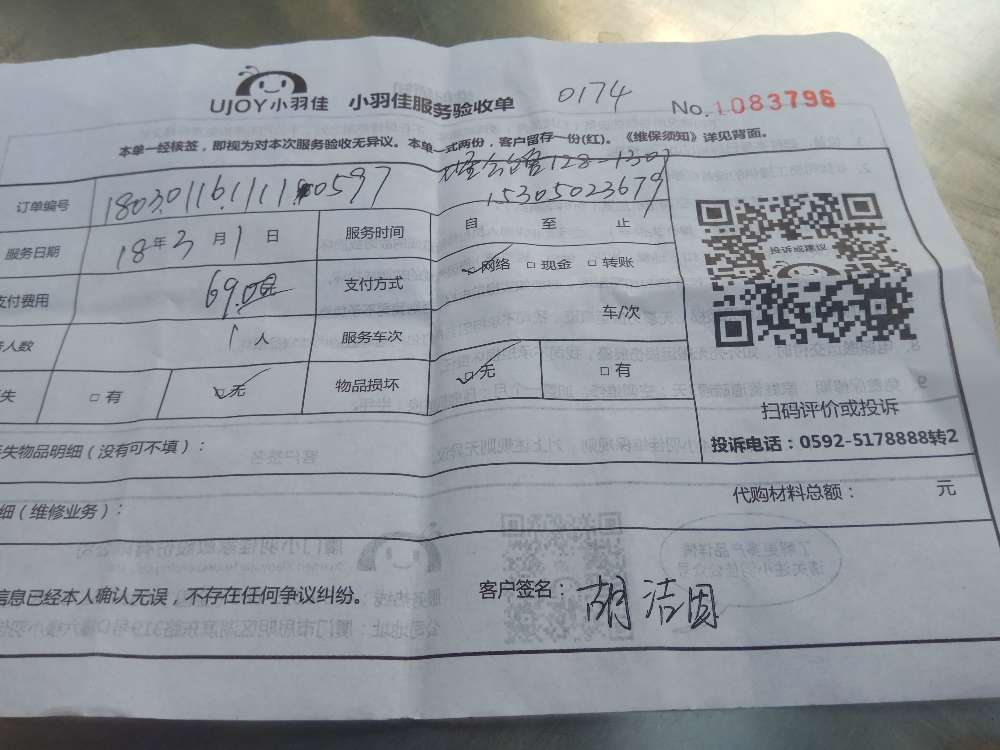 UJOY小羽佳 小羽佳服务验收单 0174 No.1083796
本单一经核签，即视为对本次服务验收无异议。本单一式两份，客户留存一份(红)。《维保须知》详见背面。
128-1307
订单编号 18030116111110597 15305023679
服务日期 18年3月1日 服务时间 自 至 止
支付费用 69.00元 支付方式 ☑网络 □现金 □转账
人数 1人 服务车次 车/次
失 □有 ☑无 物品损坏 ☑无 □有
投诉或建议
扫码评价或投诉
投诉电话：0592-5178888转2
失物品明细（没有可不填）：
细（维修业务）： 代购材料总额： 元
信息已经本人确认无误，不存在任何争议纠纷。 客户签名：胡洁因